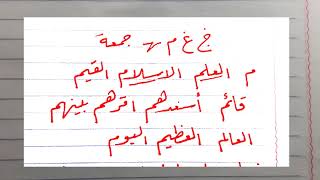 خ غ م ہ جمعة
م العلم الاسلام القيم
قائم أسعدهم اقرهم بينهم
العالم العظيم اليوم